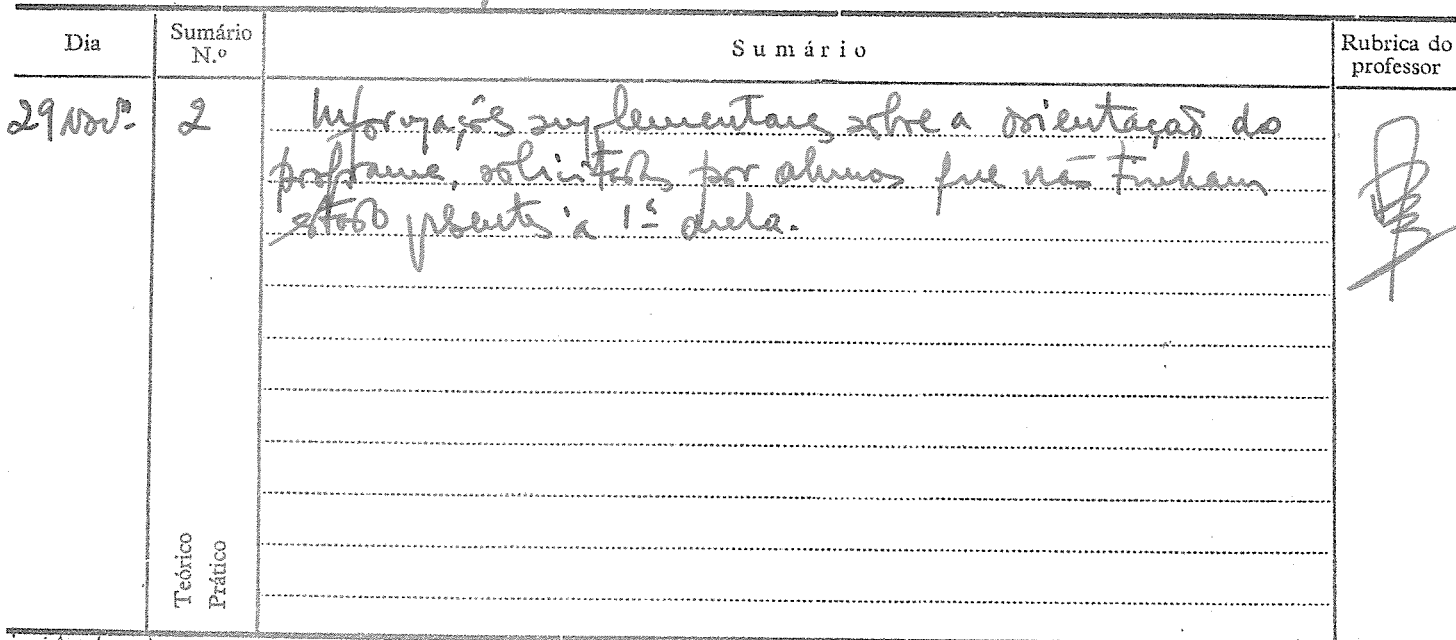 Dia
Sumário N.º
Sumário
Rubrica do professor
29 Nov.º
2
Informações suplementares sobre a orientação do
programa, solicitadas por alunos que não tinham
estado presentes à 1ª aula.
Teórico
Prático